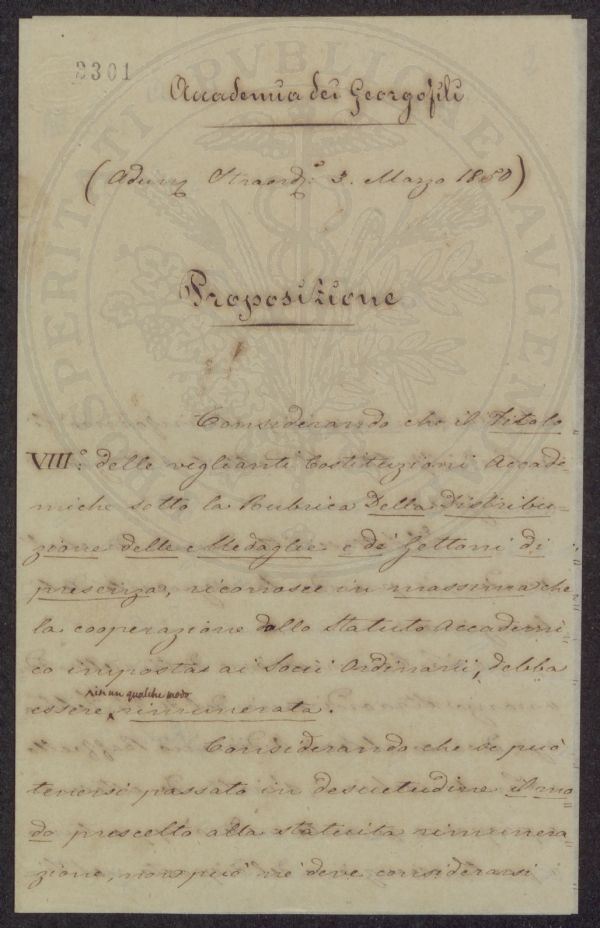 2301
Accademia dei Georgofili
(Adunz Straordª 3. Marzo 1850)
Proposizione
PROSPERITATI PVBLICAE AVGENDAE
Considerando che il Titolo
VIII.° delle veglianti Costituzioni Accade-
miche sotto la Rubrica Della Distribu-
zione delle Medaglie e de' Gettoni di
presenza, riconosce in massima che
la cooperazione dallo Statuto Accademi-
co imposta ai Socii Ordinarii, debba
in un qualche modo
essere rimunerata.
Considerando che se può
tenersi passato in desuetudine il mo-
do prescelto alla statuita rimunera-
zione, non può nè deve considerarsi